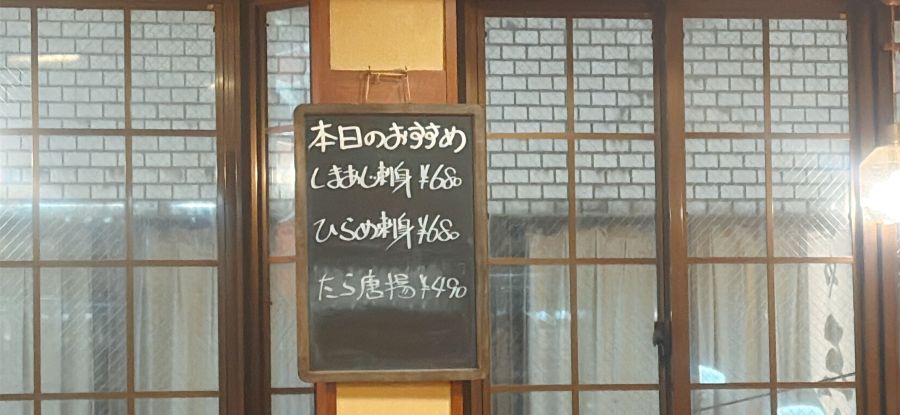 本日のおすすめ
しまあじ刺身 ¥680
ひらめ刺身 ¥680
たら唐揚 ¥490